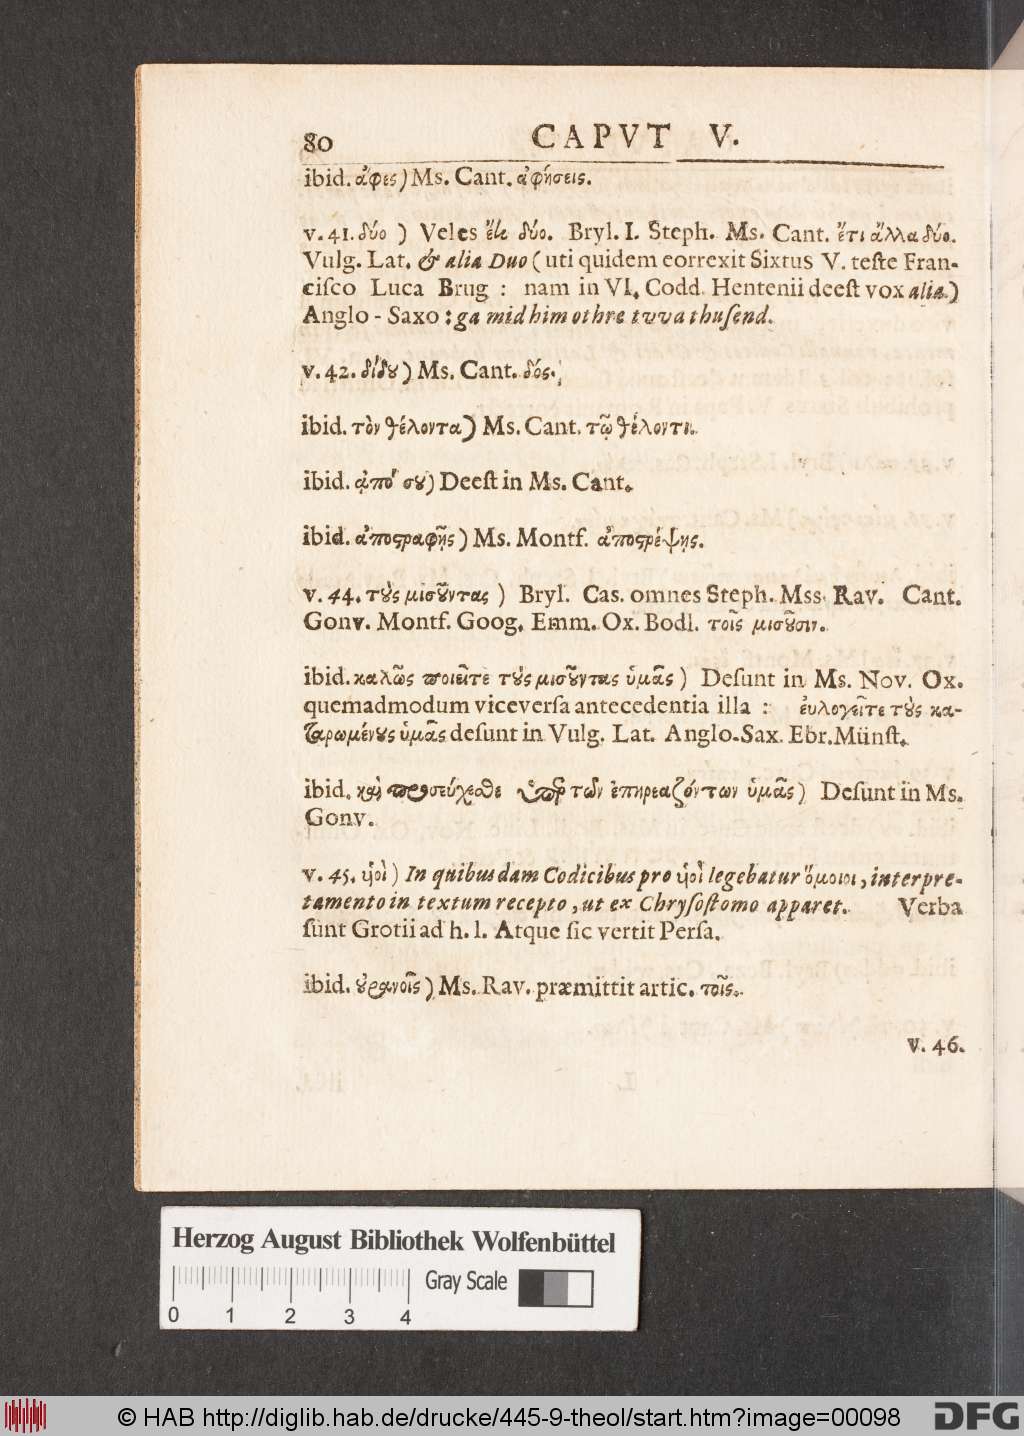 80 CAPVT V.
ibid. ἄφες) Ms. Cant. ἀφήσεις.
v. 41. δύο ) Veles ἔκ δύο. Bryl. I. Steph. Ms. Cant. ἔτι ἄλλα δύο.
Vulg. Lat. & alia Duo (uti quidem eorrexit Sixtus V. teſte Fran-
ciſco Luca Brug : nam in VI. Codd. Hentenii deeſt vox alia.)
Anglo - Saxo : ga mid him othre tvva thuſend.
v. 42. δίδου) Ms. Cant. δός.
ibid. τὸν θέλοντα) Ms. Cant. τῷ θέλοντι.
ibid. ἀπό σου) Deeſt in Ms. Cant.
ibid. ἀποςραφῇς) Ms. Montf. ἀποςρέψῃς.
v. 44. τοὺς μισοῦντας ) Bryl. Cas. omnes Steph. Mss. Rav. Cant.
Gonv. Montf. Goog. Emm. Ox. Bodl. τοῖς μισοῦσιν.
ibid. καλῶς ποιεῖτε τοὺς μισοῦντας ὑμᾶς ) Deſunt in Ms. Nov. Ox.
quemadmodum viceverſa antecedentia illa : ἐυλογεῖτε τοὺς κα-
ταρωμένους ὑμᾶς deſunt in Vulg. Lat. Anglo-Sax. Ebr. Münſt.
ibid. καὶ προσεύχεσθε ὑπὲρ τῶν ἐπηρεαζόντων ὑμᾶς ) Deſunt in Ms.
Gonv.
v. 45. ὑοὶ ) In quibusdam Codicibus pro ὑοὶ legebatur ὅμοιοι, interpre-
tamento in textum recepto, ut ex Chryſoſtomo apparet. Verba
ſunt Grotii ad h. l. Atque ſic vertit Perſa.
ibid. οὐρανοῖς ) Ms. Rav. præmittit artic. τοῖς.
v. 46.
Herzog August Bibliothek Wolfenbüttel
Gray Scale
0 1 2 3 4
© HAB http://diglib.hab.de/drucke/445-9-theol/start.htm?image=00098 DFG